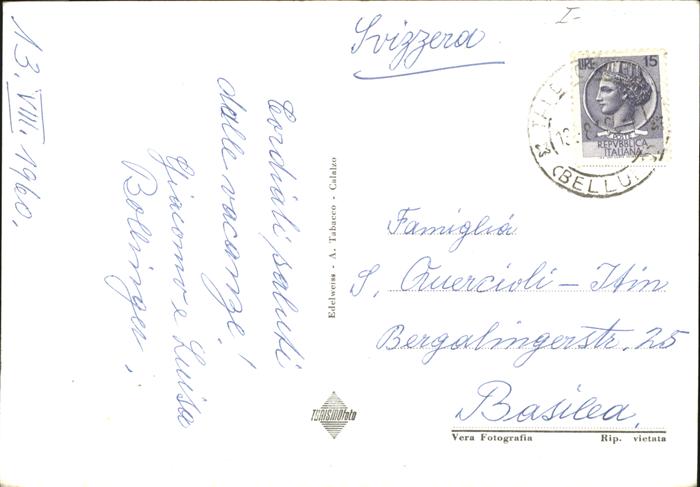 13. VIII. 1960.
Cordiali saluti
dalle vacanze!
Giacomo e Luisa
Bollinger
Edelweiss - A. Tabacco - Calalzo
TURISMOfoto
I-
Svizzera
LIRE 15
POSTE
REPVBBLICA
ITALIANA
(BELLU
Famiglia
S. Quercioli - Itin
Bergalingerstr. 25
Basilea
Vera Fotografia Rip. vietata